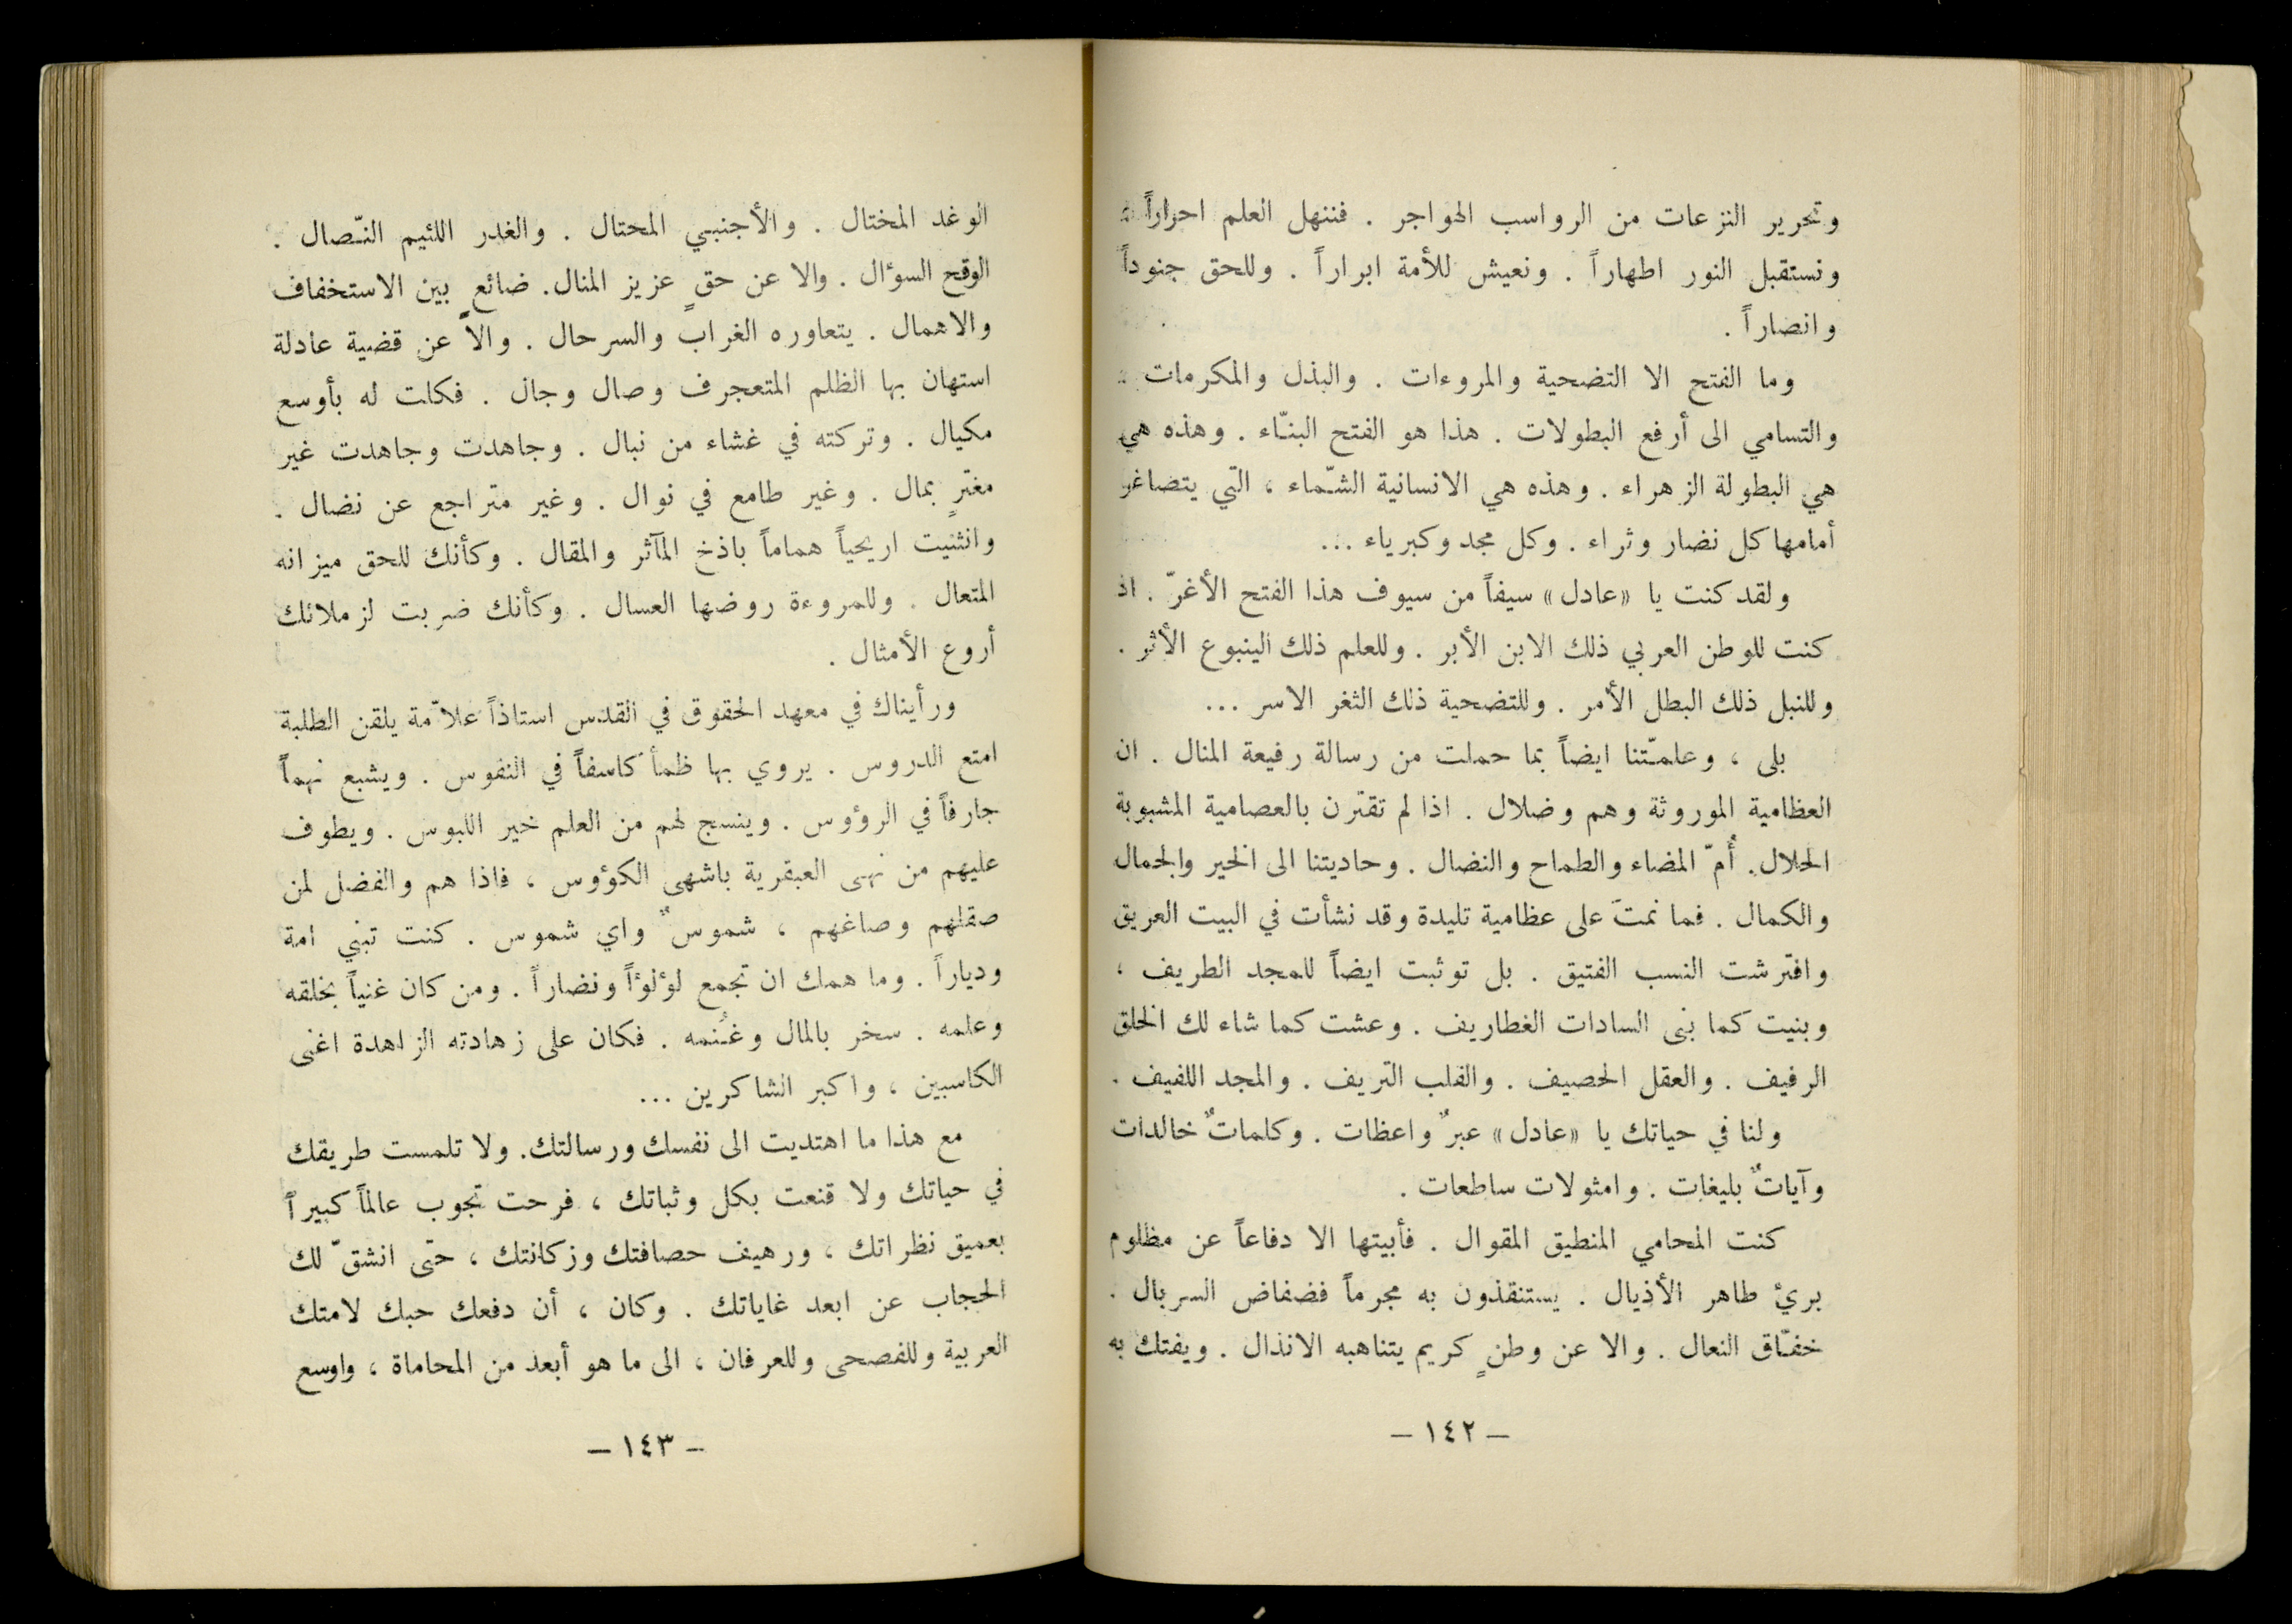 وتحرير النزعات من الرواسب الهواجر . فننهل العلم احراراً .
ونستقبل النور اطهاراً . ونعيش للأمة ابراراً . وللحق جنوداً
وانصاراً .
وما الفتح الا التضحية والمروءات . والبذل والمكرمات .
والتسامي الى أرفع البطولات . هذا هو الفتح البنّاء . وهذه هي
هي البطولة الزهراء . وهذه هي الانسانية الشمّاء ، التي يتصاغر
أمامها كل نضار وثراء . وكل مجد وكبرياء ...
ولقد كنت يا «عادل» سيفاً من سيوف هذا الفتح الأغرّ . اذ
كنت للوطن العربي ذلك الابن الأبر . وللعلم ذلك الينبوع الأثر .
وللنبل ذلك البطل الأمر . وللتضحية ذلك الثغر الاسر ...
بلى ، وعلمّتنا ايضاً بما حملت من رسالة رفيعة المنال . ان
العظامية الموروثة وهم وضلال . اذا لم تقترن بالعصامية المشبوبة
الحلال . أُمّ المضاء والطماح والنضال . وحاديتنا الى الخير والجمال
والكمال . فما نمتَ على عظامية تليدة وقد نشأت في البيت العريق
وافترشت النسب الفتيق . بل توثبت ايضاً للمجد الطريف ،
وبنيت كما بنى السادات الغطاريف . وعشت كما شاء لك الخلق
الرفيف . والعقل الحصيف . والقلب التريف . والمجد اللفيف .
ولنا في حياتك يا «عادل» عبرٌ واعظات . وكلماتٌ خالدات
وآياتٌ بليغات . وامثولات ساطعات .
كنت المحامي المنطيق المقوال . فأبيتها الا دفاعاً عن مظلوم
بريُ طاهر الأذيال . يستنقذون به مجرماً فضفاض السربال .
خفّاق النعال . والا عن وطنٍ كريم يتناهبه الانذال . ويفتك به
– ١٤٢ –
الوغد المختال . والأجنبي المحتال . والغدر اللئيم النّصال .
الوقح السوءال . والا عن حقٍ عزيز المنال . ضائع بين الاستخفاف
والاهمال . يتعاوره الغراب والسرحال . والاّ عن قضية عادلة
استهان بها الظلم المتعجرف وصال وجال . فكلت له بأوسع
مكيال . وتركته في غشاء من نبال . وجاهدت وجاهدت غير
مغترٍ بمال . وغير طامع في نوال . وغير متراجع عن نضال .
وانثنيت اريحياً هماماً باذخ المآثر والمقال . وكأنك للحق ميزانه
المتعال . وللمروءة روضها العسال . وكأنك ضربت لزملائك
أروع الأمثال .
ورأيناك في معهد الحقوق في القدس استاذاً علاّمة يلقن الطلبة
امتع الدروس . يروي بها ظمأ كاسفاً في النفوس . ويشبع نهماً
جارفاً في الرؤوس . وينسج لهم من العلم خير اللبوس . ويطوف
عليهم من نهى العبقرية باشهى الكؤوس ، فاذا هم والفضل لمن
صقلهم وصاغهم ، شموسٌ واي شموس . كنت تبني امة
ودياراً . وما همك ان تجمع لؤلؤاً ونضاراً . ومن كان غنياً بخلقه
وعلمه . سخر بالمال وغُنمه . فكان على زهادته الزاهدة اغنى
الكاسبين ، واكبر الشاكرين ...
مع هذا ما اهتديت الى نفسك ورسالتك . ولا تلمست طريقك
في حياتك ولا قنعت بكل وثباتك ، فرحت تجوب عالماً كبيراً
بعميق نظراتك ، ورهيف حصافتك وزكانتك ، حتى انشقّ لك
الحجاب عن ابعد غاياتك . وكان ، أن دفعك حبك لامتك
العربية وللفصحى وللعرفان ، الى ما هو أبعد من المحاماة ، واوسع
– ١٤٣ –